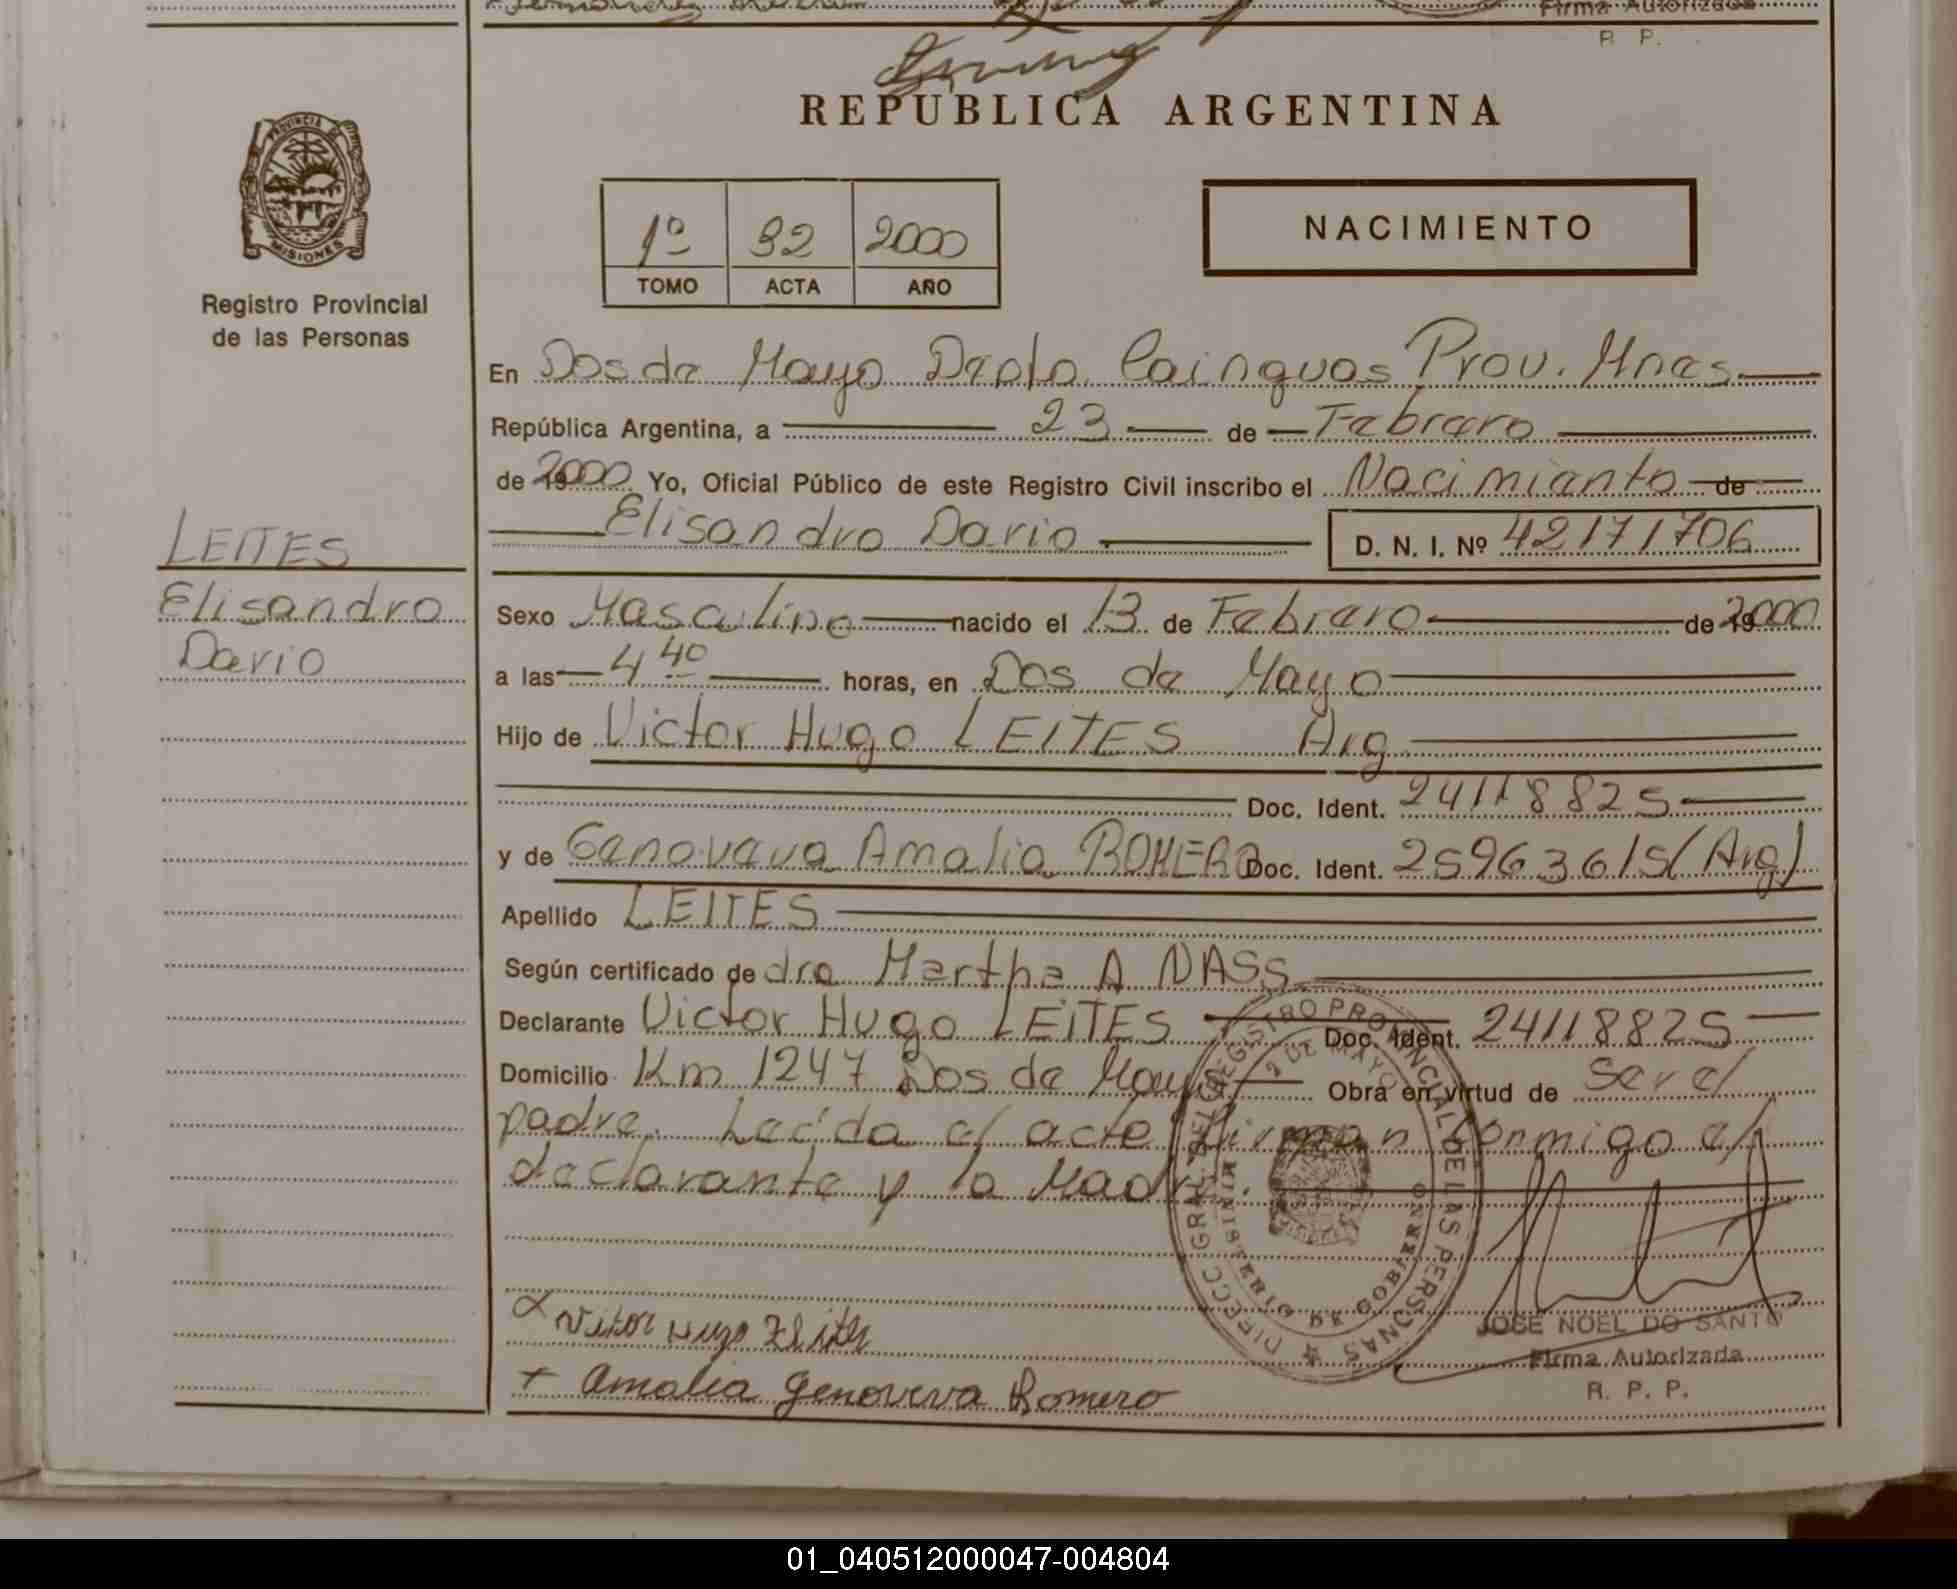 Firma Autorizada
R. P.
REPUBLICA ARGENTINA
PROVINCIA DE
MISIONES
Registro Provincial
de las Personas
1º 92 2000
TOMO ACTA AÑO
NACIMIENTO
En Dos de Mayo Dpto. Cainguas Prov. Mnes.
República Argentina, a 23 de Febrero
de 2000 Yo, Oficial Público de este Registro Civil inscribo el Nacimiento de
Elisandro Dario D. N. I. Nº 42171706
LEITES
Elisandro
Dario
Sexo Masculino nacido el 13 de Febrero de 2000
a las 4 40 horas, en Dos de Mayo
Hijo de Victor Hugo LEITES Arg
Doc. Ident. 24118825
y de Genoveva Amalia ROMERO Doc. Ident. 25963615 (Arg)
Apellido LEITES
Según certificado de dra Martha A NASS
Declarante Victor Hugo LEITES Doc. Ident. 24118825
Domicilio Km 1247 Dos de Mayo Obra en virtud de ser el
padre. Leída el acta firman conmigo el
declarante y la Madre.
DIRECC GRAL DEL REGISTRO PROVINCIAL DE LAS PERSONAS
2 DE MAYO
MINISTERIO DE GOBIERNO
Victor Hugo Leites
+ Amalia Genoveva Romero
JOSE NOEL DO SANTO
Firma Autorizada
R. P. P.
01_040512000047-004804